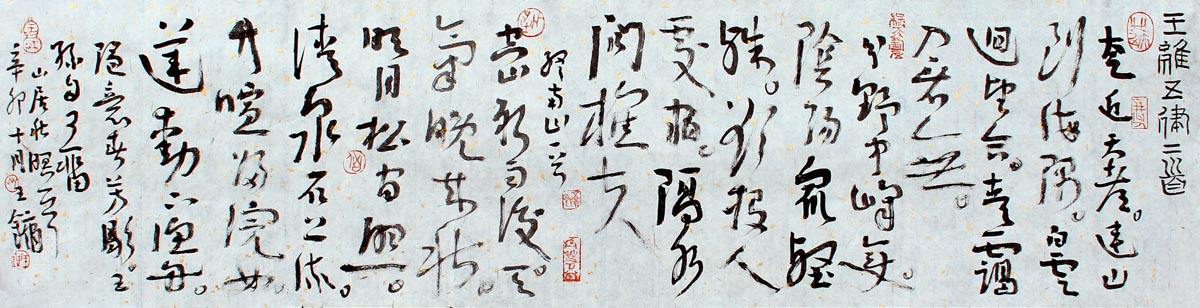 王維五律二首
太乙近天都。連山
到海隅。白雲
迴望合。青靄
入看無。
分野中峰變。
陰晴眾壑
殊。欲投人
處宿。隔水
問樵夫
終南山一首
空山新雨後。天
氣晚來秋。
明月松間照。
清泉石上流。
竹喧歸浣女。
蓮動下漁舟。
隨意春芳歇。王
孫自可留
山居秋暝一首
辛卯十月王鏞